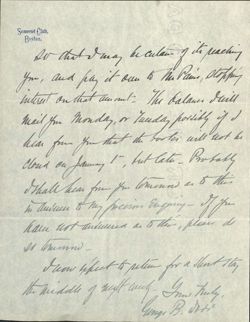 Somerset Club,
Boston.
So that I may be certain of its reaching
you, and pay it over to Mr Paine, stopping
interest on that amount. The balance I will
mail you Monday, or Tuesday possibly if I
hear from you that the books will not be
closed on January 1st, but later. Probably
I shall hear from you tomorrow as to this
in answer to my previous enquiry. If you
have not answered as to this, please do
so tomorrow.
I now expect to return for a short stay
the middle of next week.
Yours truly,
George B.